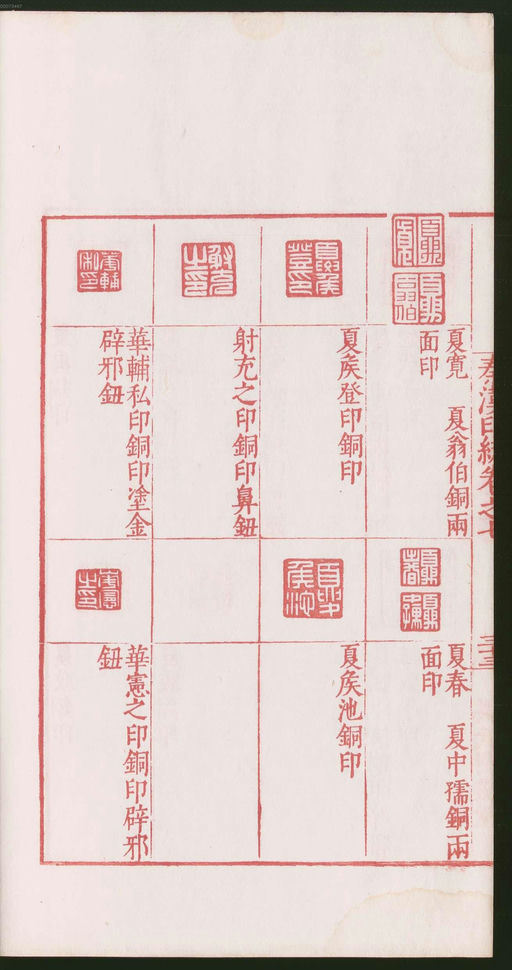 秦漢印統卷之七
三十三
夏寬　夏翁伯銅兩
面印
夏侯登印銅印
射充之印銅印鼻鈕
華輔私印銅印塗金
辟邪鈕
夏春　夏中孺銅兩
面印
夏侯池銅印
華憲之印銅印辟邪
鈕